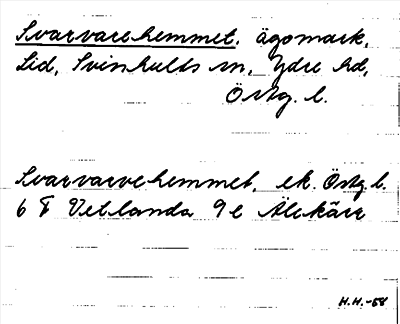 Svarvarehemmet, ägomark,
Lid, Svinhults sn, Ydre hd,
Östg. l.
Svarvarvehemmet, ek. Östg. l.
6 F Vetlanda 9 e Älekärr
H.H.-58